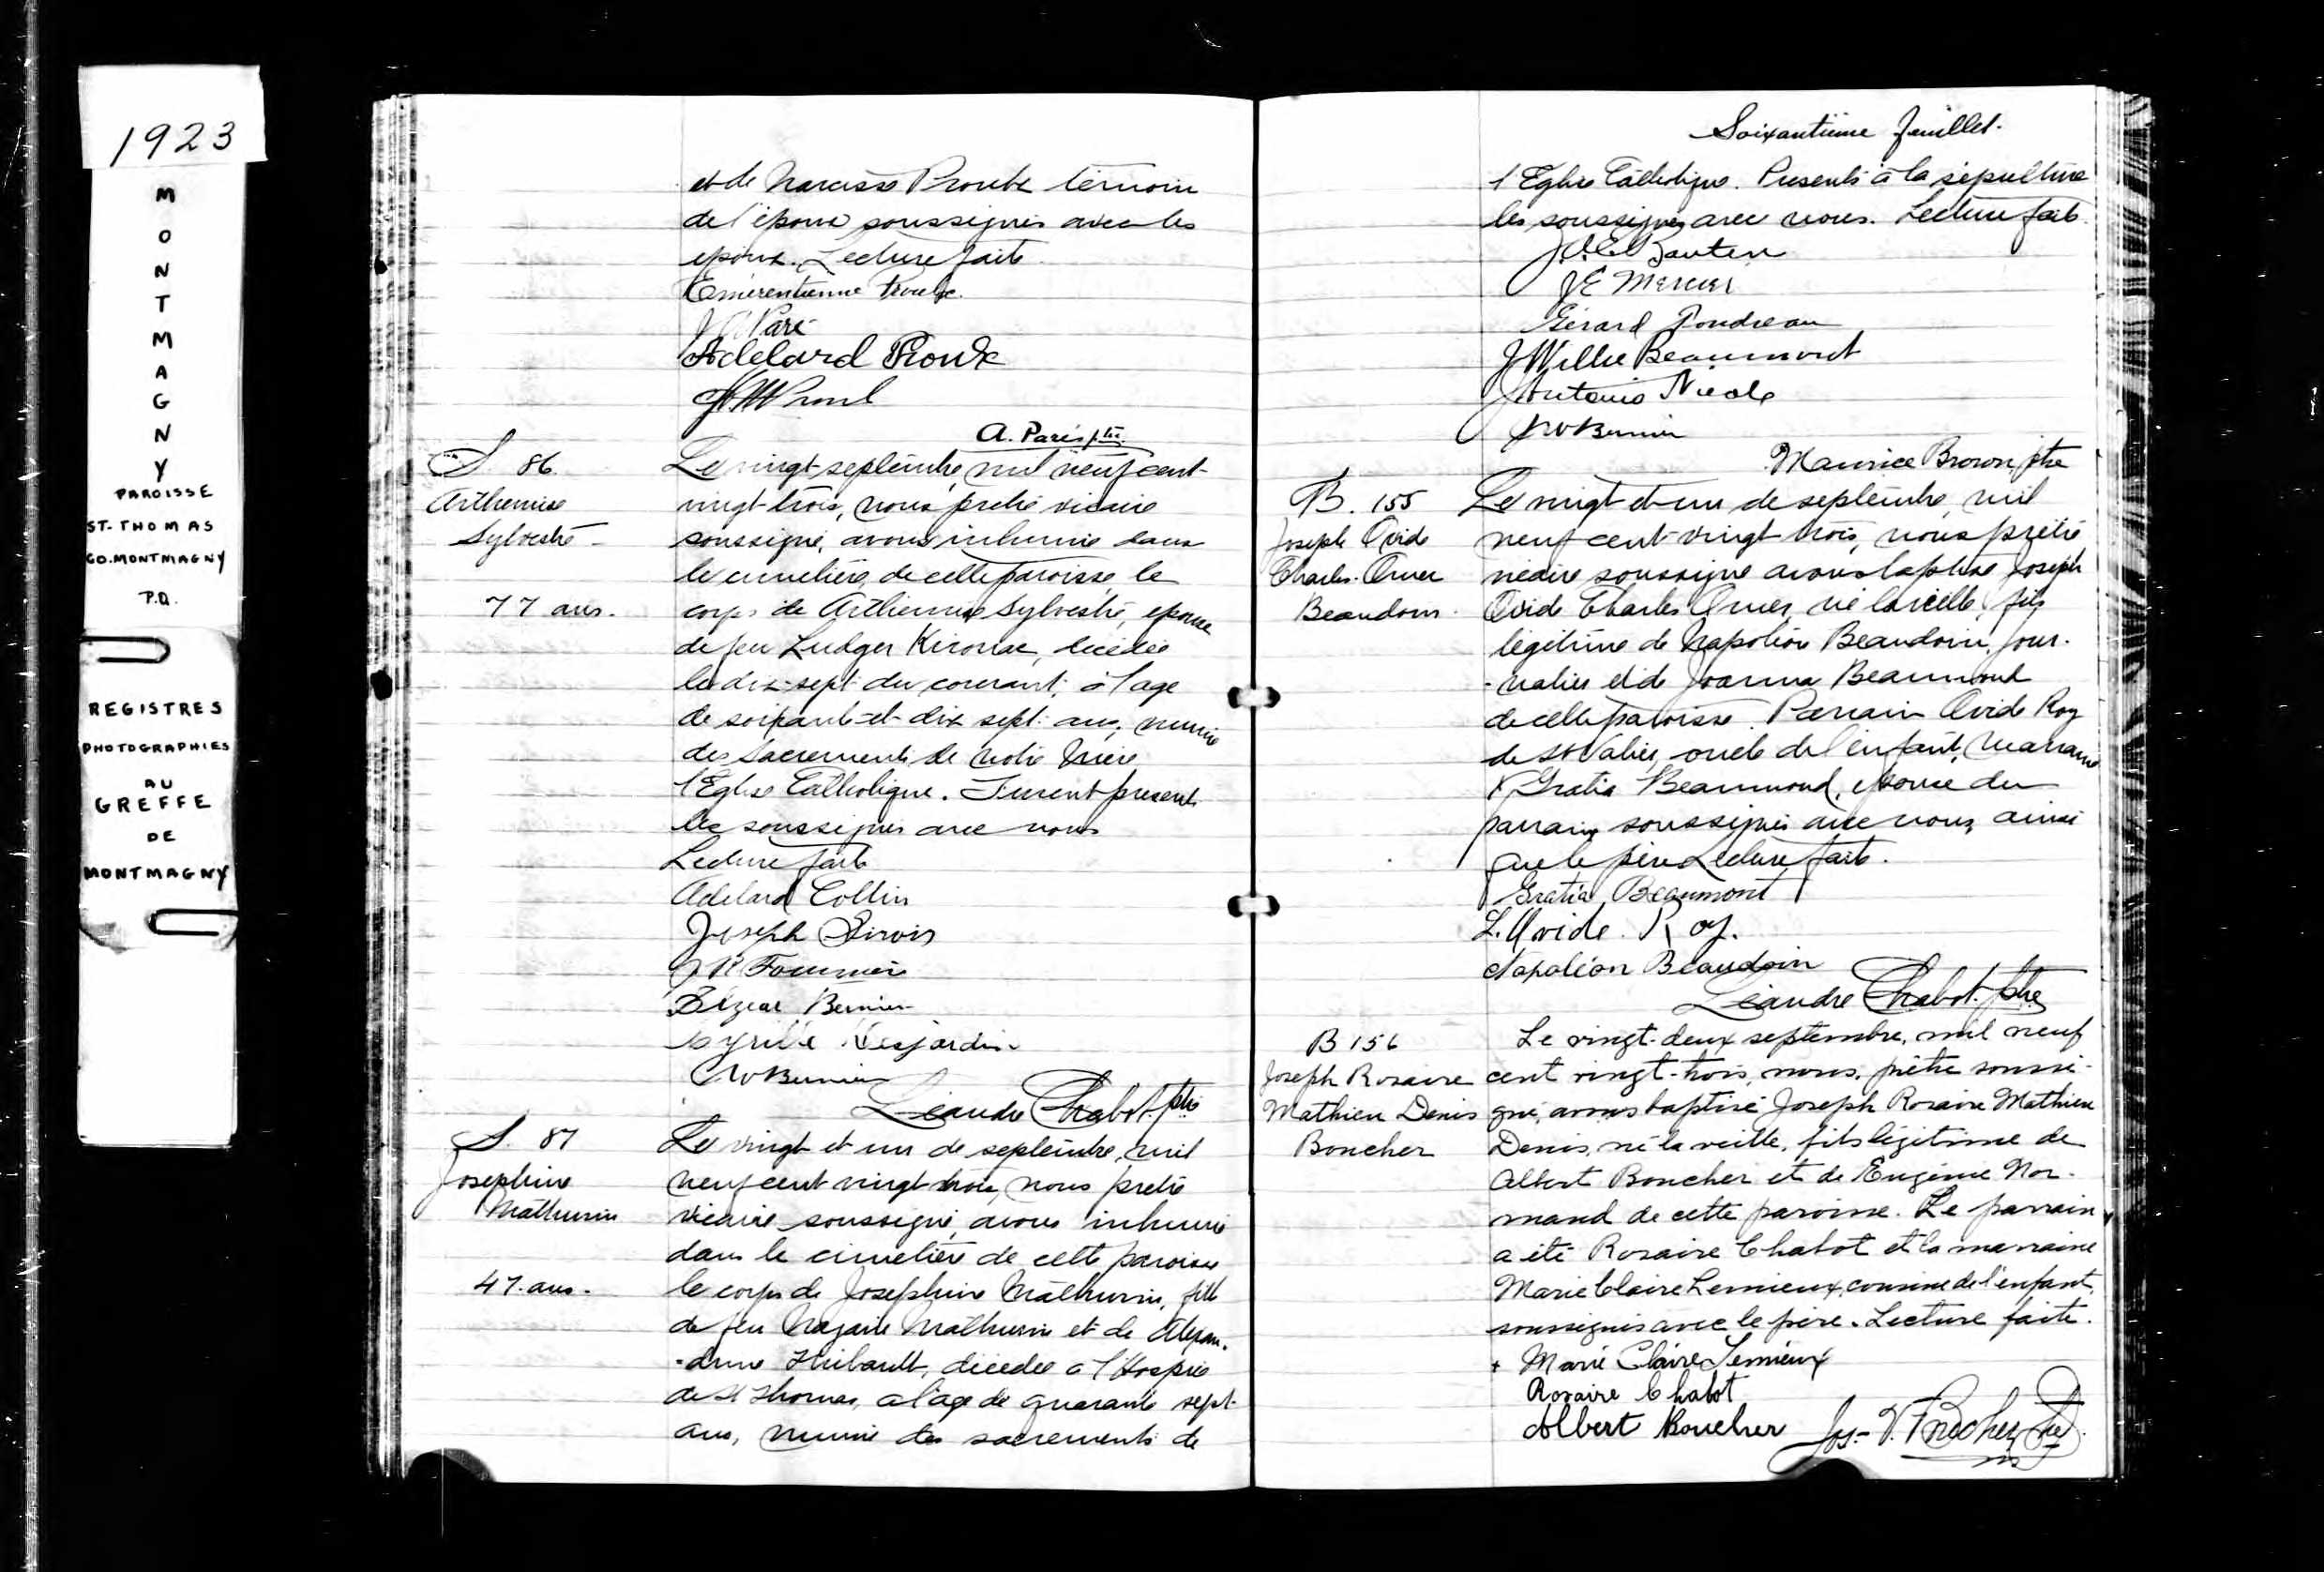 1923
MONTMAGNY
PAROISSE
ST-THOMAS
CO. MONTMAGNY
P.Q.
REGISTRES
PHOTOGRAPHIES
AU
GREFFE
DE
MONTMAGNY
et de Narcisse Proulx témoin
de l'épouse soussignés avec les
époux. Lecture faite.
Émérentienne Proulx.
Paré
Adelard Proulx
Proul
A. Paré, ptre.
S. 86
Arthemise
Sylvestre
77 ans.
Le vingt septembre, mil neuf cent
vingt-trois, nous prêtre vicaire
soussigné, avons inhumé dans
le cimetière de cette paroisse le
corps de Arthemise Sylvestre, épouse
de feu Ludger Kirouac, décédée
le dix-sept du courant, à l'age
de soixante-et-dix sept ans, munie
des sacrements de Notre Mère
l'Eglise Catholique. Furent présents
les soussignés avec nous
Lecture faite
Adelard Collin
Joseph Sirois
Fournier
Elzear Bernier
Cyrille Desjardins
Bernier
Léandre Chabot ptre
S. 87
Josephine
Mathurin
47 ans.
Le vingt et un de septembre, mil
neuf cent vingt trois, nous prêtre
vicaire soussigné, avons inhumé
dans le cimetière de cette paroisse
le corps de Josephine Mathurin, fille
de feu Nazaire Mathurin et de Alexan-
-drine Thibault, décédée à l'Hospice
de St Thomas, a l'age de quarante sept
ans, munie des sacrements de
Soixantième feuillet.
l'Eglise Catholique. Présents à la sépulture
les soussignés avec nous. Lecture faite.
J E Mercier
Gérard Poudreau
J Willie Beaumont
Antonio Nicole
Bernier
Maurice Brown, ptre
B. 155
Joseph Ovide
Charles-Omer
Beaudoin
Le vingt et un de septembre, mil
neuf cent vingt trois, nous prêtre
vicaire soussigné avons baptisé Joseph
Ovide Charles Omer, né la veille, fils
légitime de Napoléon Beaudoin, jour-
-nalier et de Joanna Beaumont
de cette paroisse. Parrain Ovide Roy
de St Valier, oncle de l'enfant, marraine
Gratia Beaumond, épouse du
parrain soussignés avec nous, ainsi
que le père. Lecture faite.
Gratia Beaumont
L. Ovide Roy.
Napoléon Beaudoin
Léandre Chabot ptre
B 156
Joseph Rosaire
Mathieu Denis
Boucher
Le vingt-deux septembre, mil neuf
cent vingt-trois, nous, prêtre soussi-
gné, avons baptisé Joseph Rosaire Mathieu
Denis, né la veille, fils légitime de
Albert Boucher et de Eugénie Nor-
mand de cette paroisse. Le parrain
a été Rosaire Chabot et la marraine
Marie Claire Lemieux, cousine de l'enfant,
soussignés avec le père. Lecture faite.
+ Marie Claire Lemieux
Rosaire Chabot
Albert Boucher